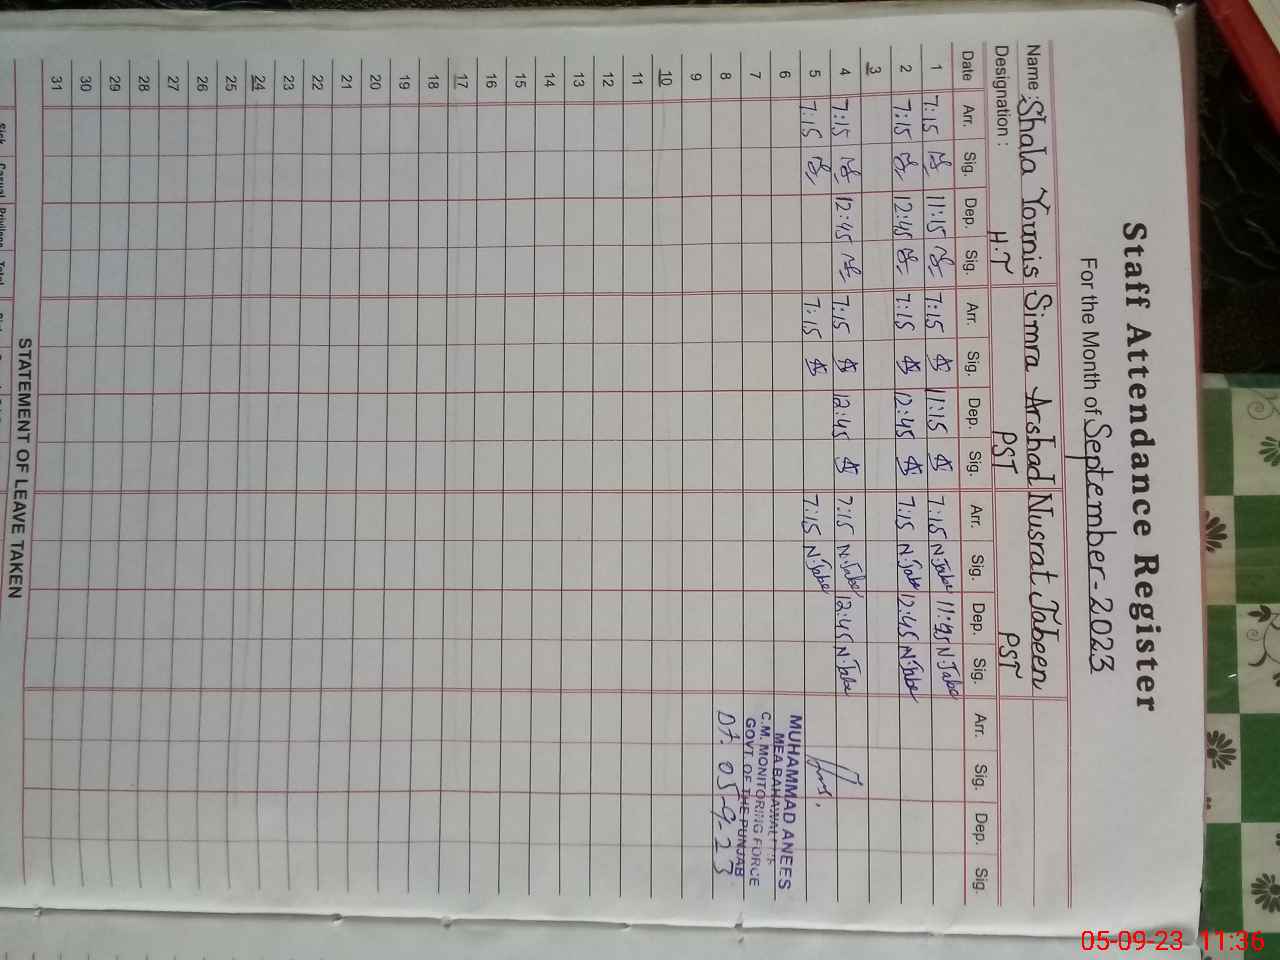 Staff Attendance Register
For the Month of September - 2023
Name : Shala Younis Simra Arshad Nusrat Jabeen
Designation : H.T PST PST
Date Arr. Sig. Dep. Sig. Arr. Sig. Dep. Sig. Arr. Sig. Dep. Sig. Arr. Sig. Dep. Sig.
1 7:15 11:15 7:15 11:15 7:15 N.Jabe 11:45 N.Jabe
2 7:15 12:45 7:15 12:45 7:15 N.Jabe 12:45 N.Jabe
3
4 7:15 12:45 7:15 12:45 7:15 N.Jabe 12:45 N.Jabe
5 7:15 7:15 7:15 N.Jabe
6
7
8
9
10
11
12
13
14
15
16
17
18
19
20
21
22
23
24
25
26
27
28
29
30
31
MUHAMMAD ANEES
MEA BAHAWAL
C.M. MONITORING FORCE
GOVT OF THE PUNJAB
Dt. 05-9-23
STATEMENT OF LEAVE TAKEN
Sick Casual Privilege Total
05-09-23 11:36